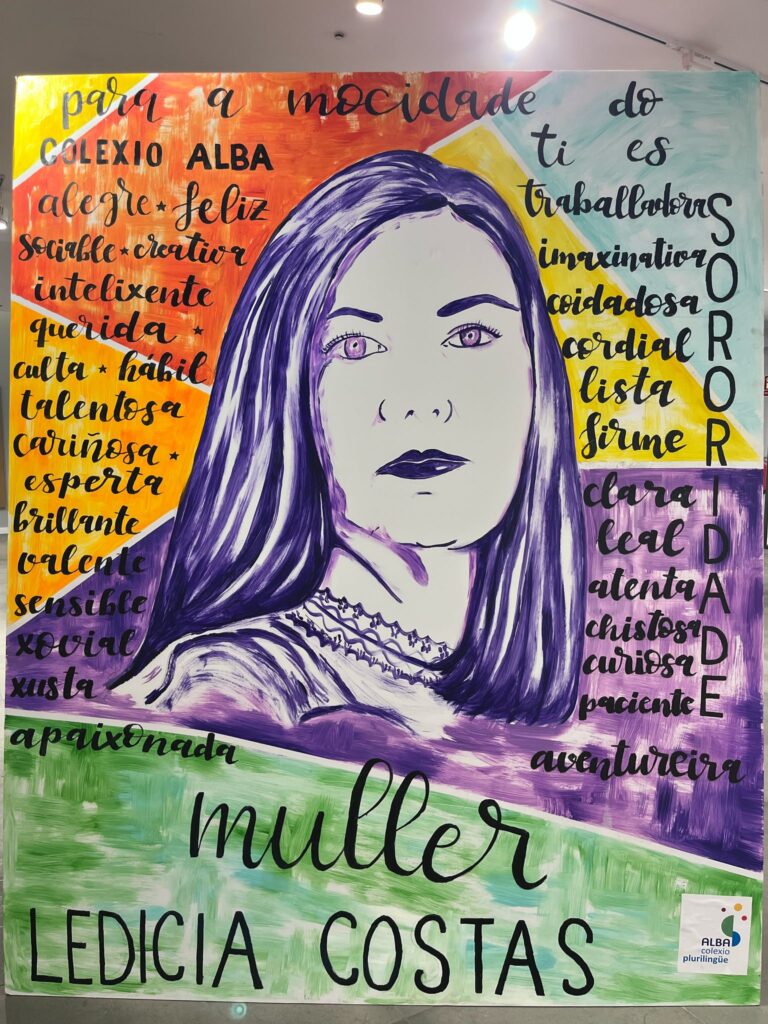 para a mocidade do
COLEXIO ALBA
alegre ★ feliz
sociable ★ creativa
intelixente
querida ★
culta ★ hábil
talentosa
cariñosa ★
esperta
brillante
valente
sensible
xovial
xusta
apaixonada
ti es
traballadora
imaxinativa
coidadosa
cordial
lista
firme
clara
leal
atenta
chistosa
curiosa
paciente
aventureira
SORORIDADE
muller
LEDICIA COSTAS
ALBA
colexio
plurilingüe